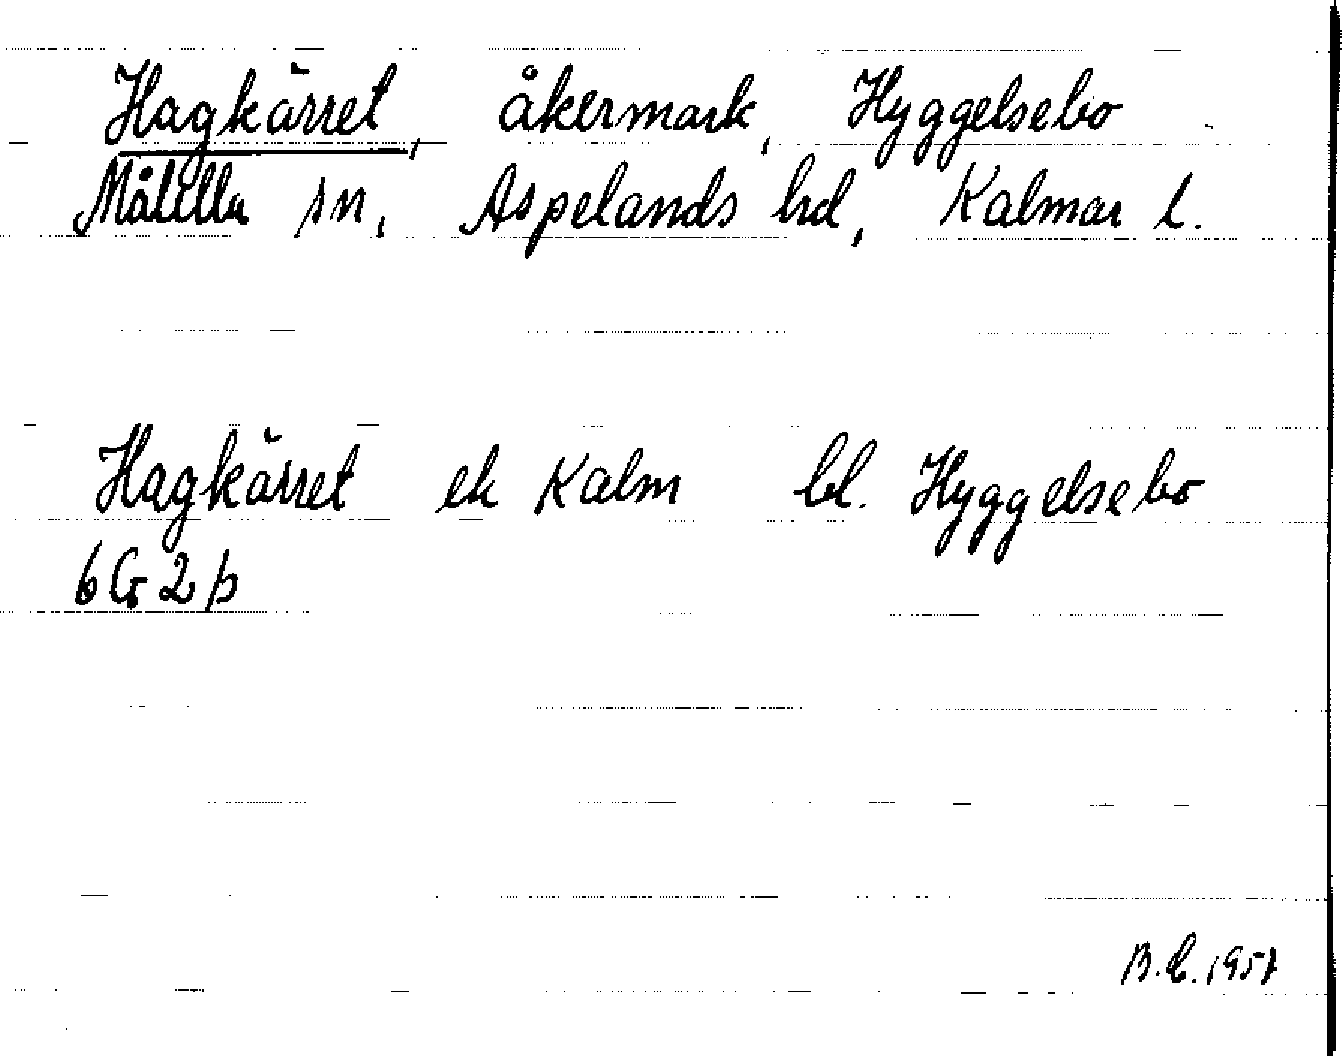 Hagkärret, åkermark, Hyggelsebo
Målilla sn, Aspelands hd, Kalmar l.
Hagkärret ek Kalm bl. Hyggelsebo
6 G 2 b
B.L. 1957